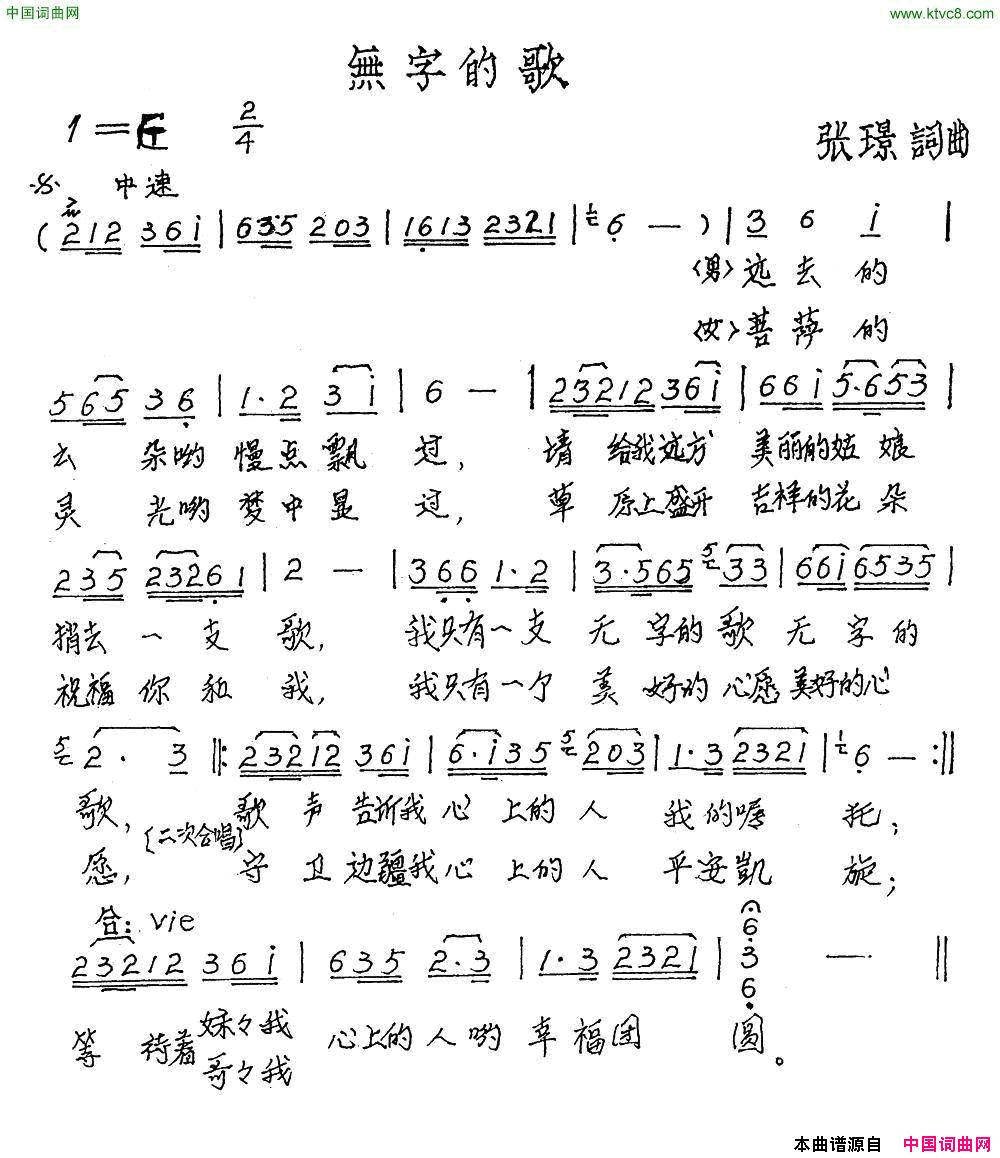 中国词曲网
www.ktvc8.com
無字的歌
1=E 2/4
张璟詞曲
中速
(212 36i | 635 203 | 1613 2321 | 6 — ) | 3 6 i |
〈男〉远去的
〈女〉菩萨的
565 36 | 1·2 3i | 6 — | 23212 36i | 66i 5·653 |
云朵哟慢点飘过，请给我远方美丽的姑娘
灵光哟梦中显过，草原上盛开吉祥的花朵
235 23261 | 2 — | 366 1·2 | 3·565 33 | 66i 6535 |
捎去一支歌，我只有一支无字的歌无字的
祝福你和我，我只有一个美好的心愿美好的心
2·3 ‖: 23212 36i | 6·i35 203 | 1·3 2321 | 6 — :‖
歌，歌声告诉我心上的人我的嘱托；
〔二次合唱〕
愿，守卫边疆我心上的人平安凯旋；
合：Vie
23212 36i | 635 2·3 | 1·3 2321 | 6 3 6 — ‖
等待着妹々我心上的人哟幸福团圆。
哥々我
本曲谱源自 中国词曲网